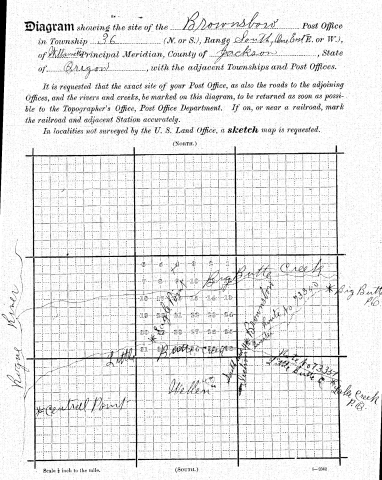 Diagram showing the site of the Brownsboro Post Office
in Township 36 (N. or S.), Range South, One East E. or W.),
of Willamette Principal Meridian, County of Jackson, State
of Oregon, with the adjacent Townships and Post Offices.
It is requested that the exact site of your Post Office, as also the roads to the adjoining
Offices, and the rivers and creeks, be marked on this diagram, to be returned as soon as possi-
ble to the Topographer's Office, Post Office Department. If on, or near a railroad, mark
the railroad and adjacent Station accurately.
In localities not surveyed by the U. S. Land Office, a sketch map is requested.
(NORTH.)
Big Butte Creek
* Big Butte
P.O.
Rogue River
* Eagle Point
Brownsboro
Route No 73340
Little Butte Creek
Route No 73351
Little Butte C
* Lake Creek
P.O.
Wellen
* Central Point
Scale ½ inch to the mile.
(SOUTH.)